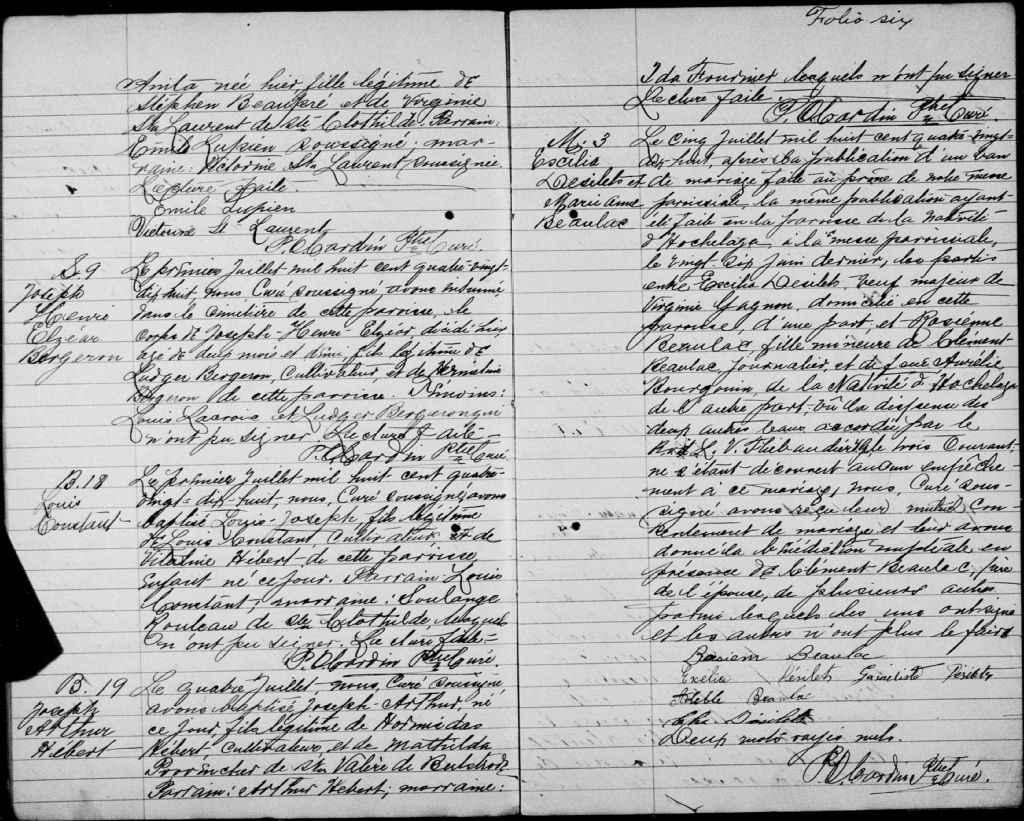 Anita née hier fille légitime de
Stéphen Beaupré et de Virginie
St. Laurent de Ste Clothilde. Parrain:
Emile Lupien soussigné; mar-
raine: Victorine St. Laurent soussignée
Lecture faite.
Emile Lupien
Victorine St Laurent
P. O. Cardin Ptre Curé.
S. 9
Joseph
Henri
Elzéar
Bergeron
Le premier Juillet mil huit cent quatre-vingt-
dix huit, nous, Curé soussigné, avons inhumé,
dans le cimetière de cette paroisse, le
corps de Joseph-Henri-Elzéar décédé hier
âgé de deux mois et demi, fils légitime de
Ludger Bergeron, Cultivateur, et de
Bergeron de cette paroisse. Témoins:
Louis Lacroix et Ludger Bergeron qui
n'ont pu signer. Lecture faite
P. O. Cardin Ptre Curé.
B. 18
Louis
Constant
Le premier Juillet mil huit cent quatre
vingt-dix-huit, nous, Curé soussigné, avons
baptisé Louis-Joseph, fils légitime
de Louis Constant Cultivateur et de
Vitaline Hébert de cette paroisse
Enfant né ce jour. Parrain Louis
Constant; marraine: Soulange
Rouleau de Ste Clothilde lesquels
n'ont pu signer. Lecture faite-
P. O. Cardin Ptre Curé.
B. 19
Joseph
Arthur
Hébert
Le quatre Juillet, nous, Curé soussigné
avons baptisé Joseph-Arthur, né
ce jour, fils légitime de Hormidas
Hébert Cultivateur, et de Mathilda
Provincher de St. Valère de Bulstrode
Parrain: Arthur Hébert; marraine:
Folio six
Ida Fournier lesquels n'ont pu signer
Lecture faite.
P. O. Cardin Ptre Curé.
M. 3
Excélia
Desilets et
Marie Anne
Beaulac
Le cinq Juillet mil huit cent quatre-vingt-
dix-huit, après la publication d'un ban
de mariage faite au prône de notre messe
paroissiale, la même publication ayant-
été faite en la paroisse de la Nativité
d'Hochelaga, à la messe paroissiale,
le vingt-six Juin dernier, des partis
entre Excélia Desilets, veuf majeur de
Virginie Gagnon, domicilié en cette
paroisse, d'une part, et Rosienne
Beaulac, fille mineure de Clément-
Beaulac, journalier, et de feue Aurélie
Bourgouin, de la Nativité d'Hochelaga
de l'autre part; vû la dispense des
deux autres bans accordée par le
Rvd L. V. Thibaudier le trois Courant,
ne s'étant découvert aucun empêche-
ment à ce mariage, nous, Curé sous-
signé avons reçu leur mutuel con-
sentement de mariage et leur avons
donné la bénédiction nuptiale en
présence de Clément Beaulac, père
de l'épouse, de plusieurs autres
parmi lesquels les uns ont signé
et les autres n'ont plus le faire
Rosienne Beaulac
Exélia Désilets
Beaulac
Deux mots rayés nuls.
P. O. Cardin Ptre Curé.